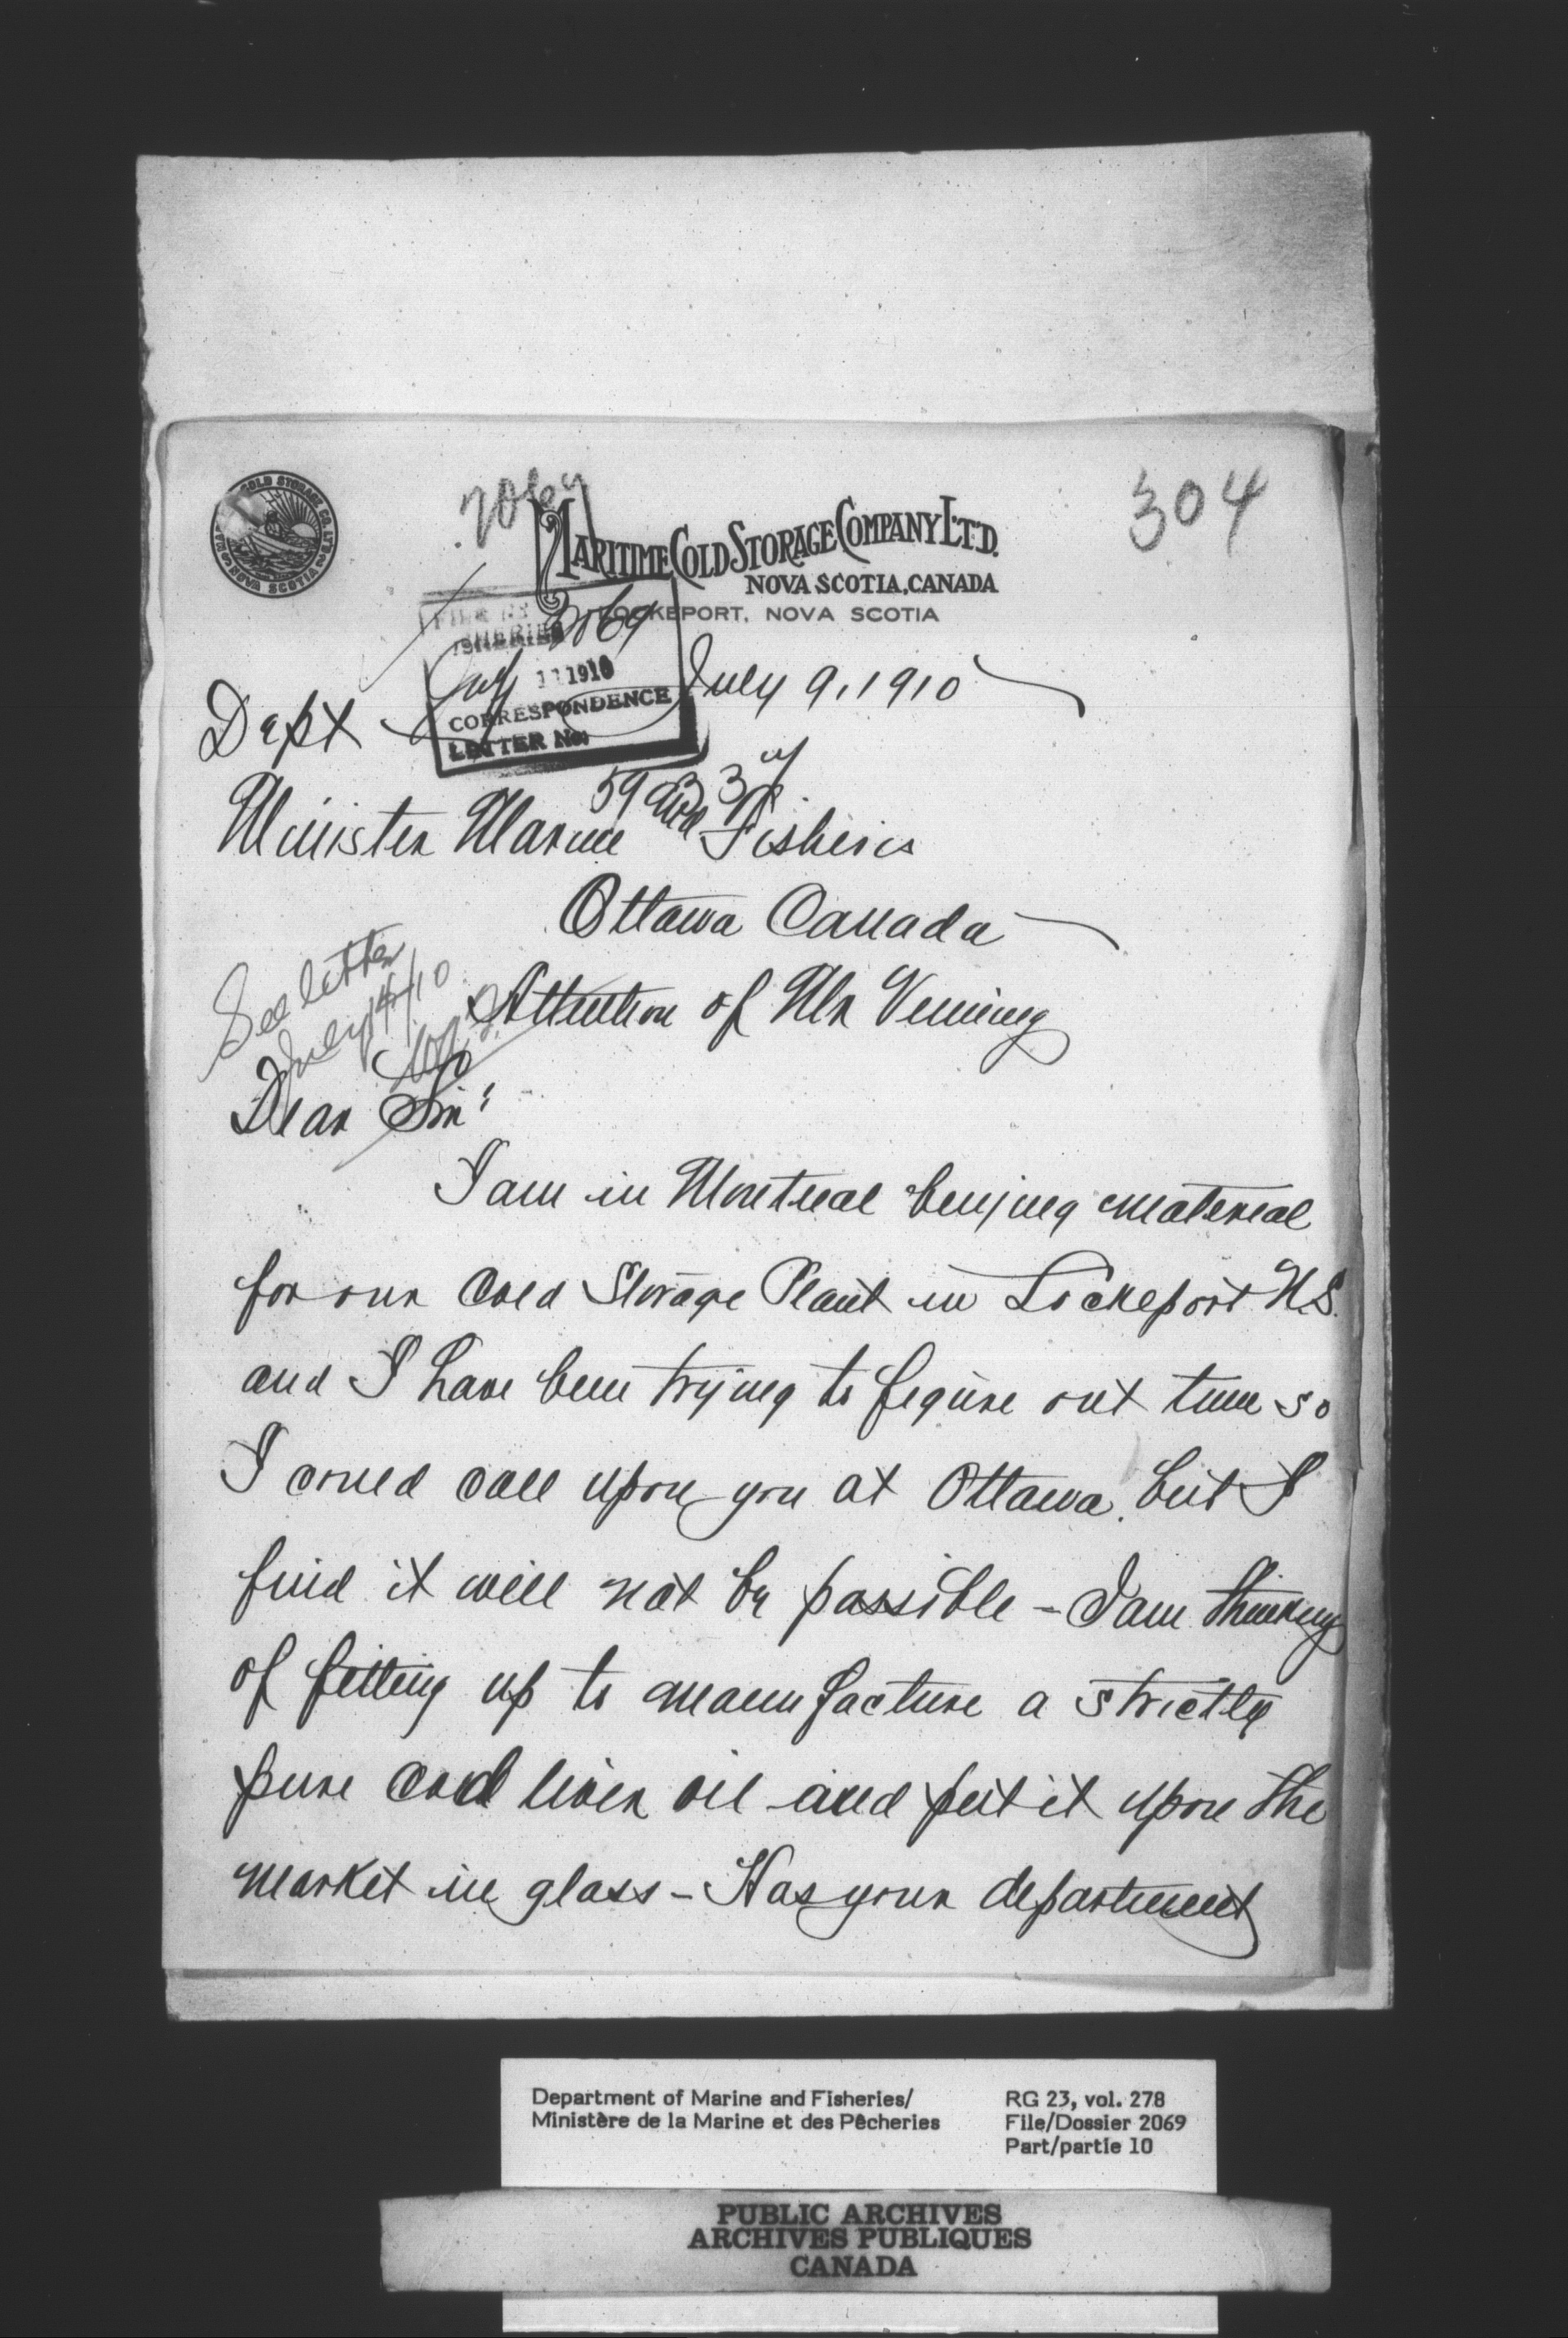 304
COLD STORAGE CO. LTD.
NOVA SCOTIA
MARITIME COLD STORAGE COMPANY LTD.
NOVA SCOTIA, CANADA
LOCKEPORT, NOVA SCOTIA
FISHERIES 2069
July 11 1910
CORRESPONDENCE
LETTER No.
July 9, 1910
Dept
Minister Marine and Fisheries
Ottawa Canada
Attention of Mr Venning
See letter
July 14/10
Dear Sir:
I am in Montreal buying material
for our Cold Storage Plant in Lockeport N.S.
and I have been trying to figure out time so
I could call upon you at Ottawa, but I
find it will not be possible - I am thinking
of fitting up to manufacture a strictly
pure cod liver oil and put it upon the
market in glass - Has your department
Department of Marine and Fisheries/
Ministère de la Marine et des Pêcheries
RG 23, vol. 278
File/Dossier 2069
Part/partie 10
PUBLIC ARCHIVES
ARCHIVES PUBLIQUES
CANADA